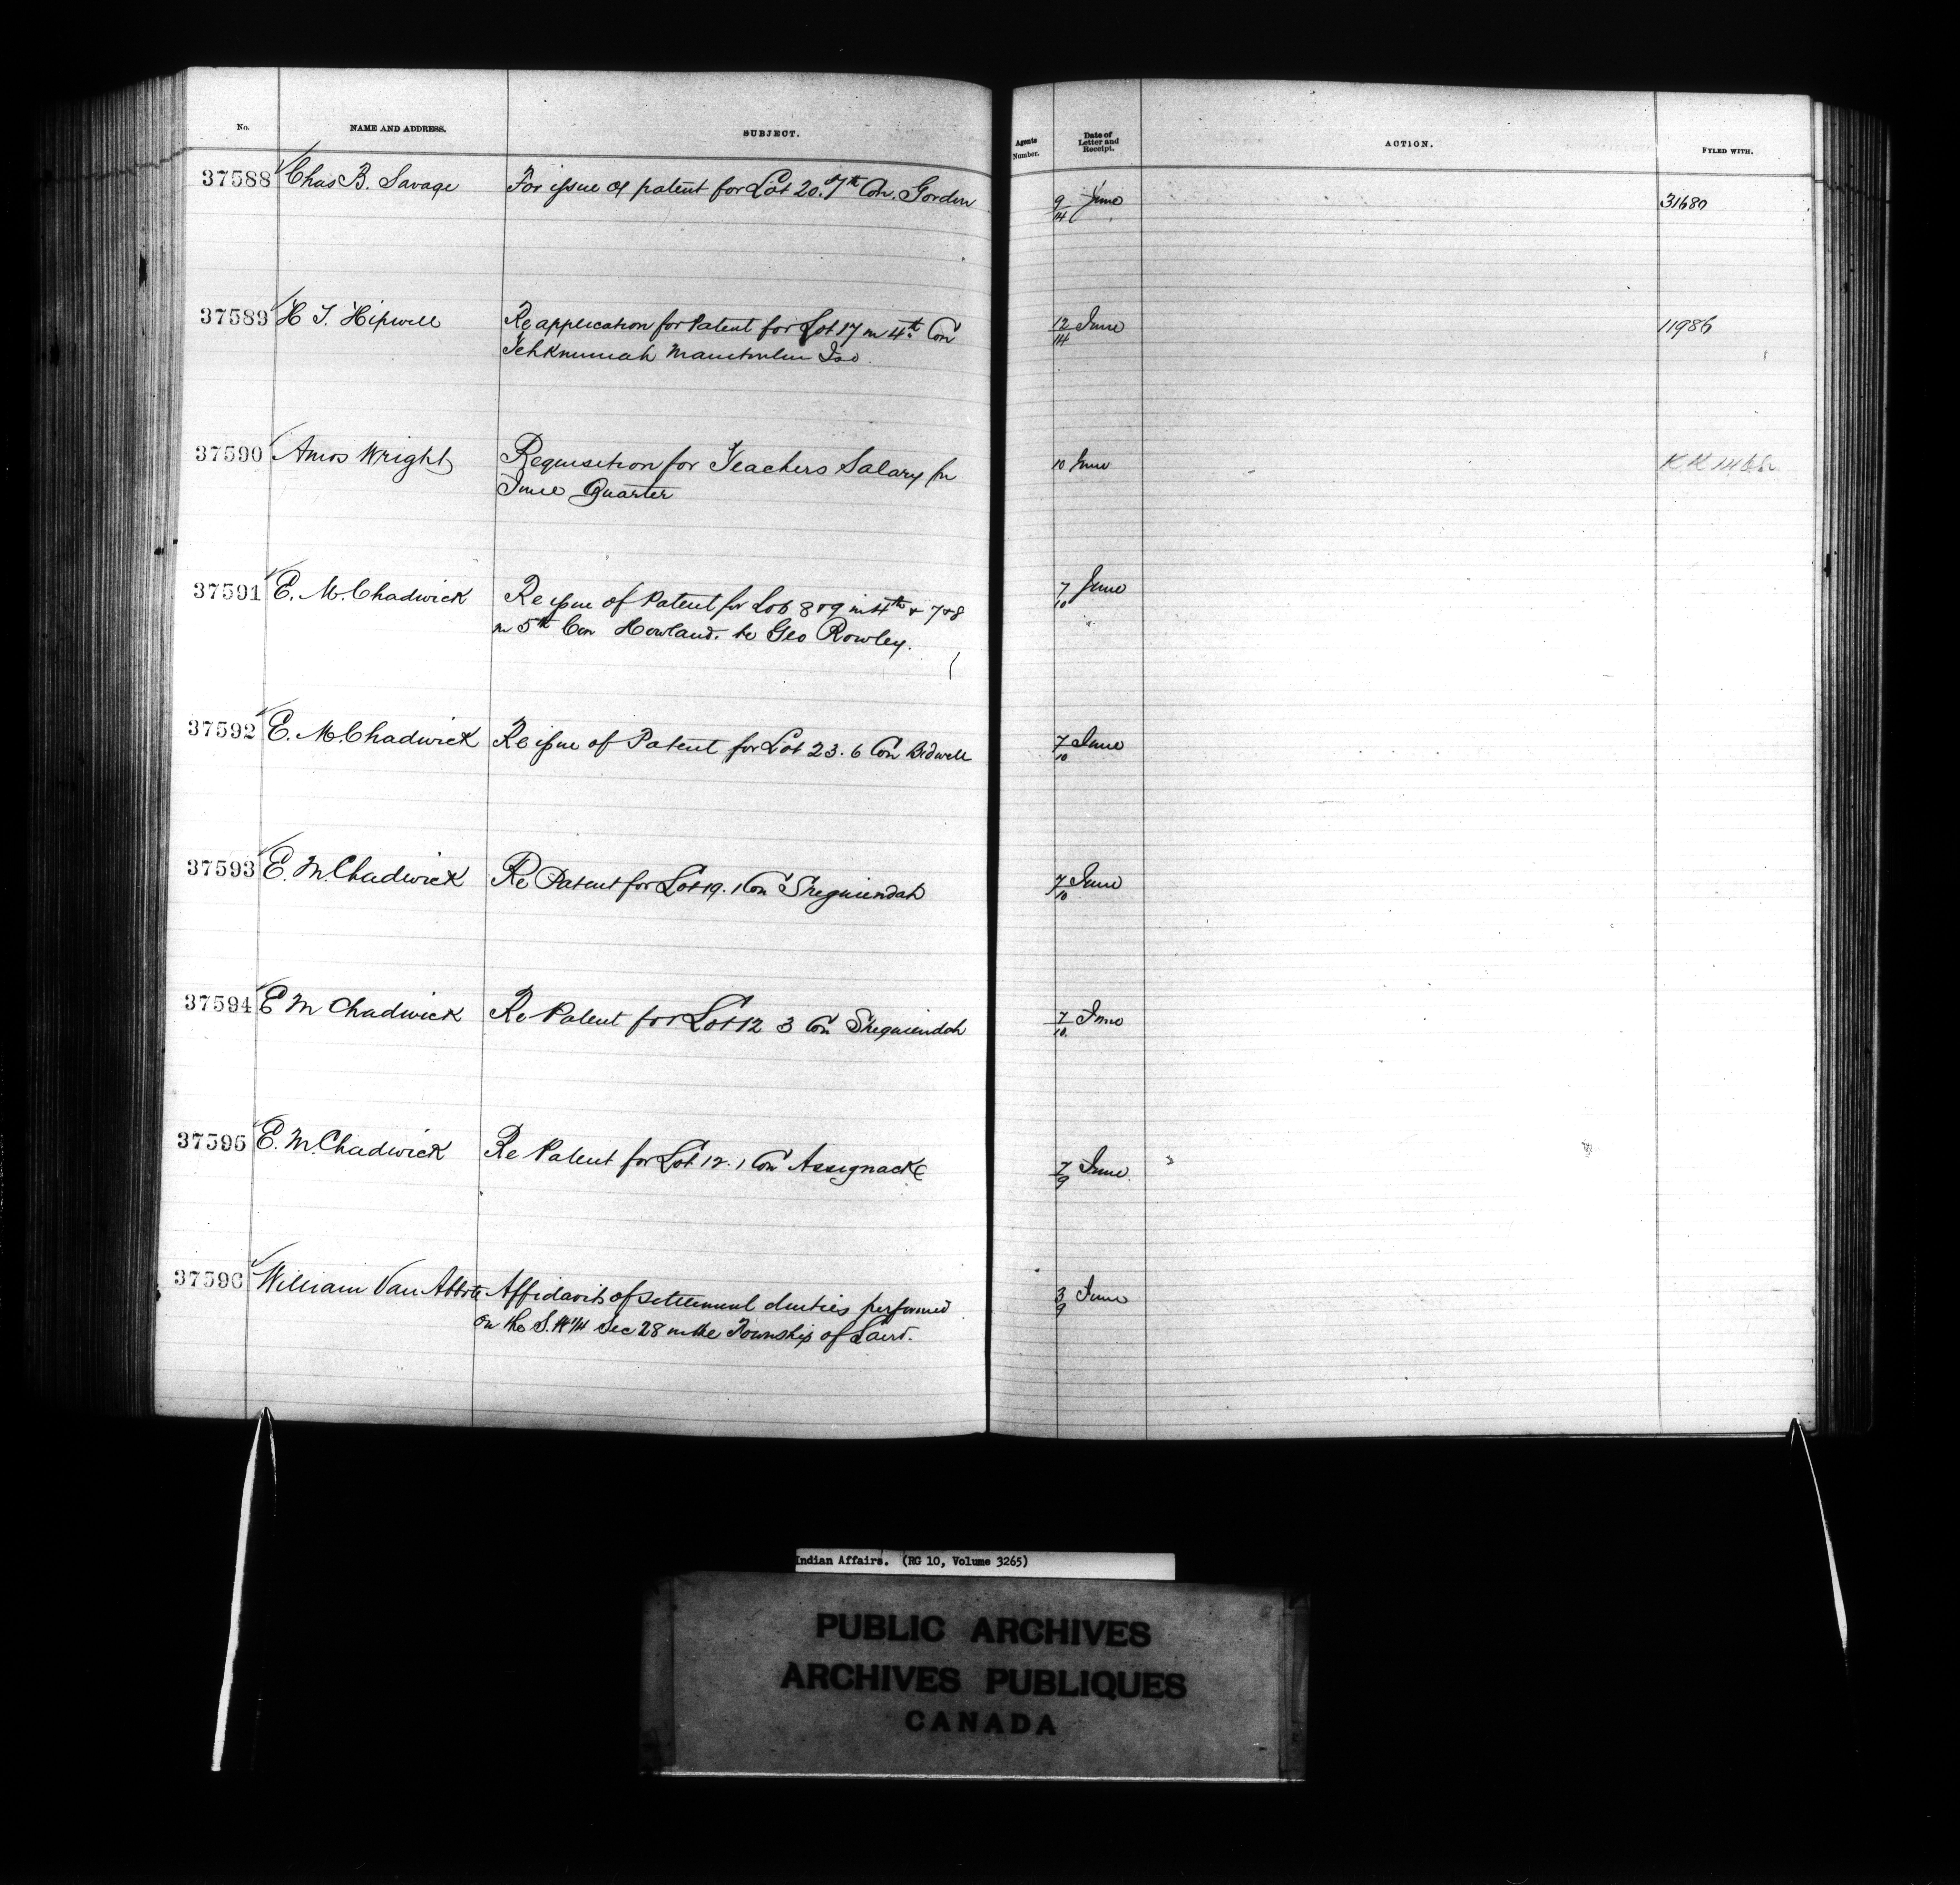 No. NAME AND ADDRESS. SUBJECT. Agents Number. Date of Letter and Receipt. ACTION. FYLED WITH.
37588 Chas B. Savage For issue of patent for Lot 20. 7th Con. Gordon 9/14 June 31680
37589 H T. Hipwell Re application for Patent for Lot 17 in 4th Con 12/14 June 11986
Tehkummah Manitoulin Isd.
37590 Amos Wright Requisition for Teachers Salary for 10 June
June Quarter
37591 E. M. Chadwick Re issue of Patent for Lots 8 & 9 in 4th & 7 & 8 7/10 June
in 5th Con Howland. to Geo Rowley.
37592 E. M. Chadwick Re issue of Patent for Lot 23. 6 Con Bidwell 7/10 June
37593 E. M. Chadwick Re Patent for Lot 19. 1 Con Sheguiendah 7/10 June
37594 E M Chadwick Re Patent for Lot 12 3 Con Sheguiendah 7/10. June
37595 E. M. Chadwick Re Patent for Lot 12. 1 Con Assignack 7/9 June.
37596 William Van Abbott Affidavits of settlement duties performed 3/9 June
on the S.W 1/4 Sec 28 in the Township of Laird.
Indian Affairs. (RG 10, Volume 3265)
PUBLIC ARCHIVES
ARCHIVES PUBLIQUES
CANADA